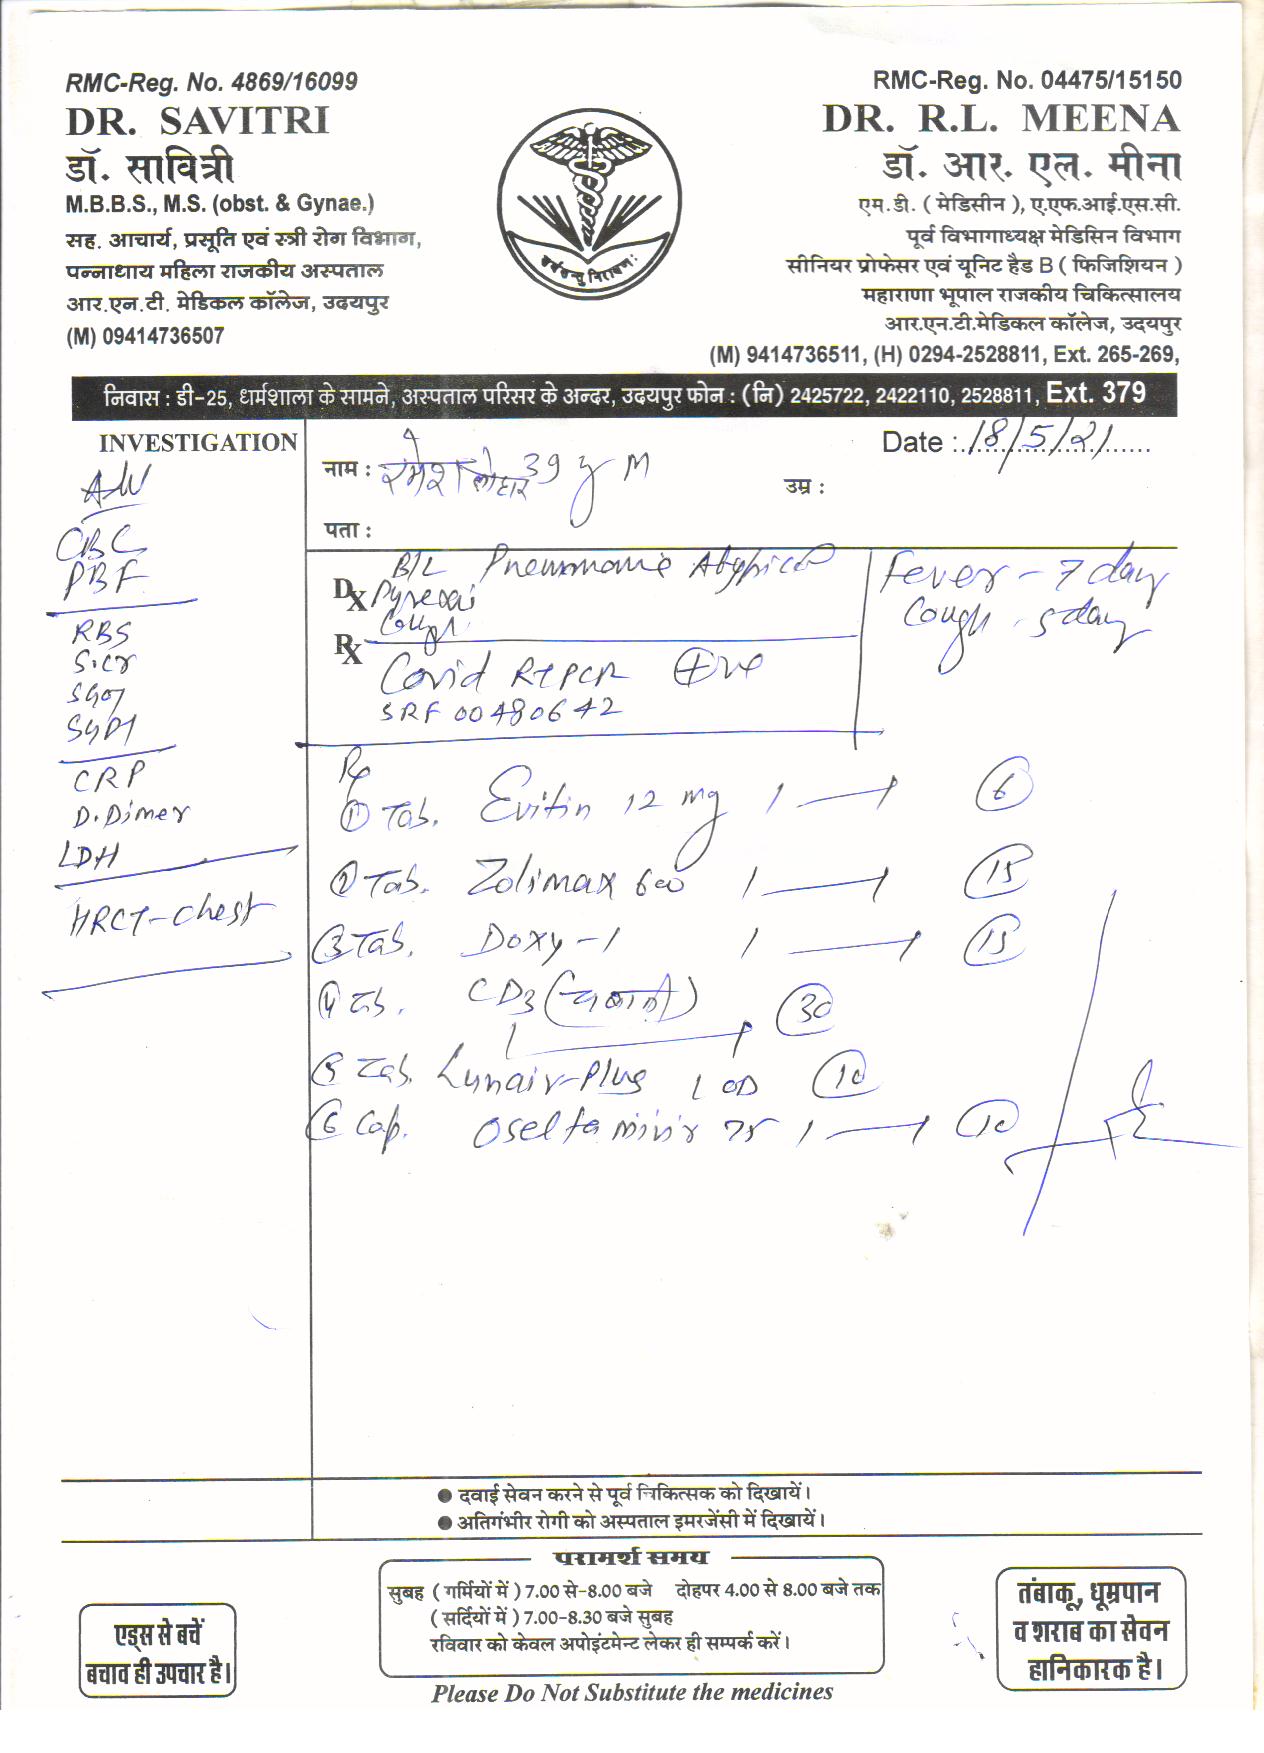 RMC-Reg. No. 4869/16099
DR. SAVITRI
डॉ. सावित्री
M.B.B.S., M.S. (obst. & Gynae.)
सह. आचार्य, प्रसूति एवं स्त्री रोग विभाग,
पन्नाधाय महिला राजकीय अस्पताल
आर.एन.टी. मेडिकल कॉलेज, उदयपुर
(M) 09414736507
सर्वे सन्तु निरामयाः
RMC-Reg. No. 04475/15150
DR. R.L. MEENA
डॉ. आर. एल. मीना
एम.डी. ( मेडिसीन ), ए.एफ.आई.एस.सी.
पूर्व विभागाध्यक्ष मेडिसिन विभाग
सीनियर प्रोफेसर एवं यूनिट हैड B ( फिजिशियन )
महाराणा भूपाल राजकीय चिकित्सालय
आर.एन.टी.मेडिकल कॉलेज, उदयपुर
(M) 9414736511, (H) 0294-2528811, Ext. 265-269,
निवास : डी-25, धर्मशाला के सामने, अस्पताल परिसर के अन्दर, उदयपुर फोन : (नि) 2425722, 2422110, 2528811, Ext. 379
INVESTIGATION
CBC
PBF
RBS
S.Cr
SGOT
SGPT
CRP
D.Dimer
LDH
HRCT-Chest
Date : 18/5/21
नाम : रमेश लोहार 39 y M
उम्र :
पता :
Dx B/L Pneumonia Atypical
Pyrexia
Cough
Fever - 7 day
Cough . 5 day
Rx
Covid RTPCR +ve
SRF 00480642
Rx
1 Tab. Evitin 12 mg 1 — 1 6
2 Tab. Zolimax 600 1 — 1 15
3 Tab. Doxy-1 1 — 1 15
4 Tab. CD3 1 — 1 30
5 Tab. Lunair-Plus 1 OD 10
6 Cap. Oseltamivir 75 1 — 1 10
● दवाई सेवन करने से पूर्व चिकित्सक को दिखायें।
● अतिगंभीर रोगी को अस्पताल इमरजेंसी में दिखायें।
परामर्श समय
सुबह ( गर्मियों में ) 7.00 से-8.00 बजे दोहपर 4.00 से 8.00 बजे तक
( सर्दियों में ) 7.00-8.30 बजे सुबह
रविवार को केवल अपोइंटमेन्ट लेकर ही सम्पर्क करें।
एड्स से बचें
बचाव ही उपचार है।
तंबाकू, धूम्रपान
व शराब का सेवन
हानिकारक है।
Please Do Not Substitute the medicines